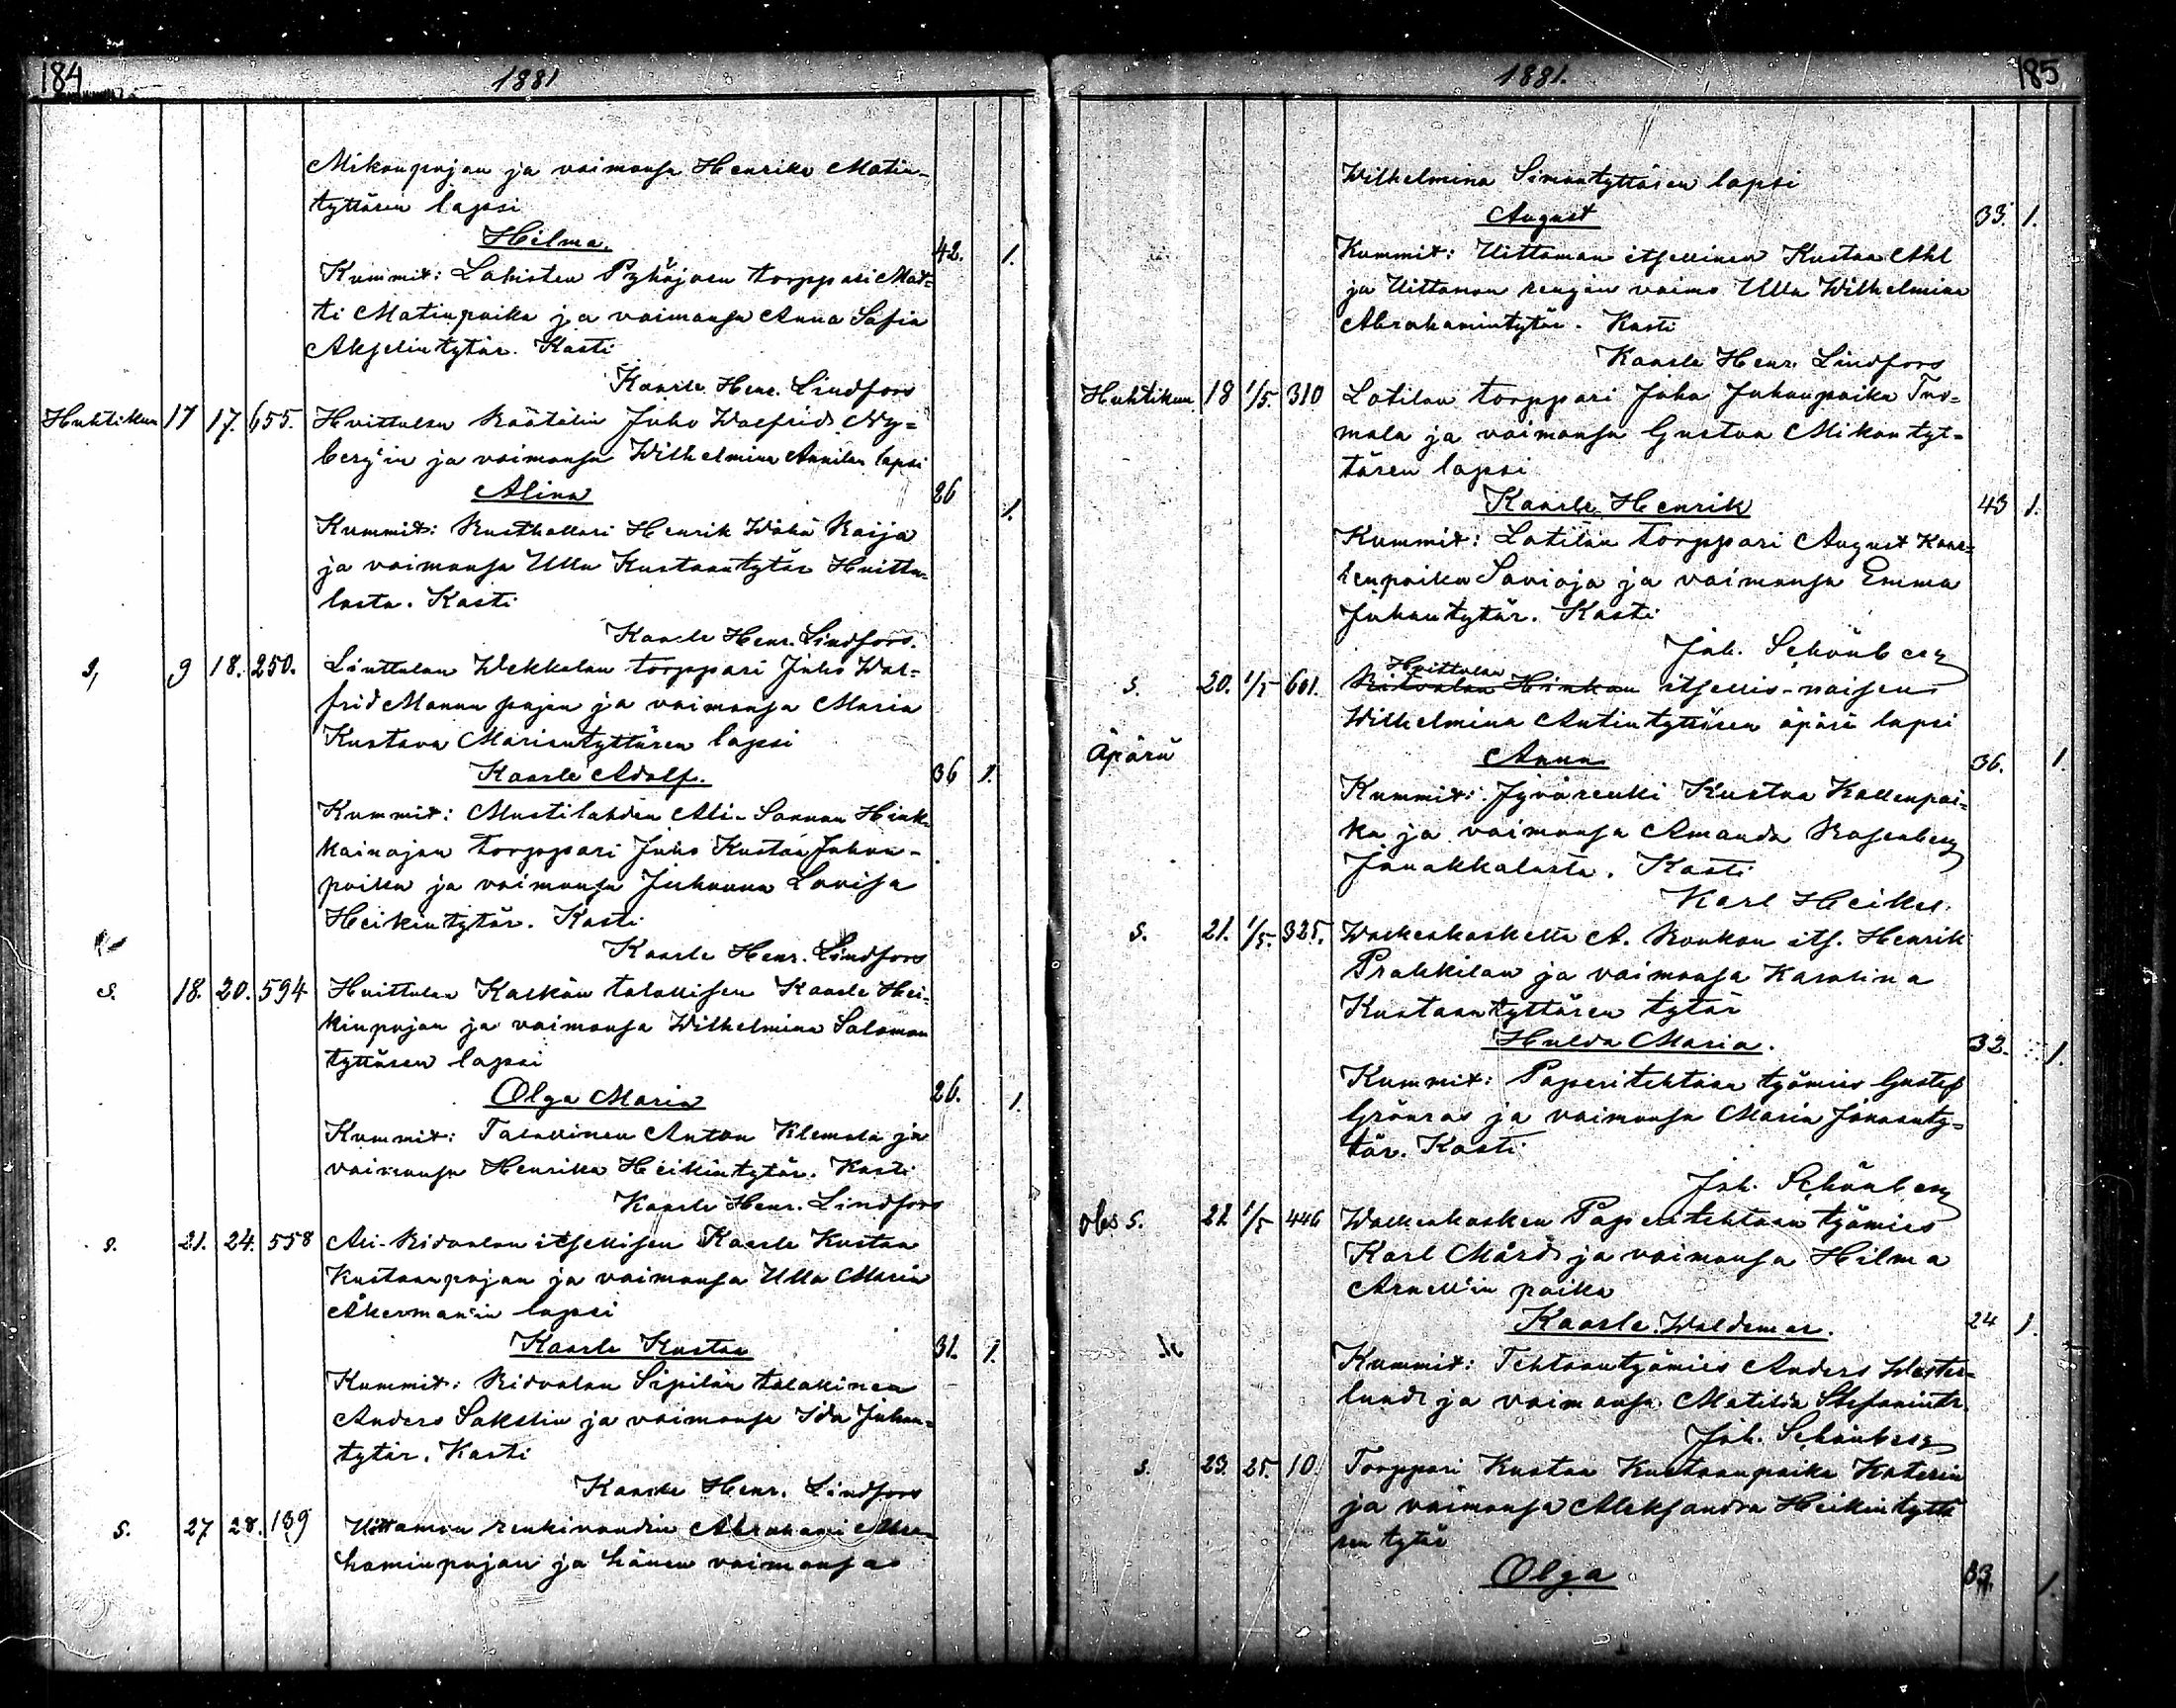 184
1881
Mikonpojan ja vaimonsa Henrika Matin-
tyttären lapsi
Hilma. 42. 1.
Kummit: Lahisten Pyhäjoen torppari Mat-
ti Matinpoika ja vaimonsa Anna Sofia
Akselintytär. Kasti
Kaarle Henr. Lindfors
Huhtikuu 17 17. 655. Huittulan Räätälin Juho Walfrid Ny-
berg'in ja vaimonsa Wilhelmina Annilan lapsi
Alina 26 1.
Kummit: Rusthollari Henrik Wähä Raija
ja vaimonsa Ulla Kustaantytär Huittu-
lasta. Kasti
Kaarle Henr. Lindfors.
s, 9 18. 250. Linttulan Wekkalan torppari Juho Wal-
frid Mannu pojan ja vaimonsa Maria
Kustava Marian tyttären lapsi
Kaarle Adolf. 36 1.
Kummit: Mustilahden Ali-Sannan Hink-
kainojan torppari Juho Kustaa Juhan-
poika ja vaimonsa Juhanna Lovisa
Heikintytär. Kasti
Kaarle Henr. Lindfors
s. 18. 20. 594 Huittulan Kaskän talollisen Kaarle Hei-
kinpojan ja vaimonsa Wilhelmina Salomon
tyttären lapsi
Olga Maria 26. 1.
Kummit: Talollinen Anton Klemola ja
vaimonsa Henrika Heikintytär. Kasti
Kaarle Henr. Lindfors
s. 21. 24. 558 Ali-Ridvalan itsellisen Kaarle Kustaa
Kustaanpojan ja vaimonsa Ulla Maria
Åkerman'in lapsi
Kaarle Kustaa 31. 1.
Kummit: Ridvalan Sipilän talollinen
Anders Sakslin ja vaimonsa Ida Juhan-
tytär. Kasti
Kaarle Henr. Lindfors
s. 27 28. 139 Uittamon renkivoudin Abrahami Abra-
haminpojan ja hänen vaimonsa
1881.
185
Wilhelmina Simontyttären lapsi
August 33. 1.
Kummit: Uittamon itsellinen Kustaa Ahl
ja Uittamon rengin vaimo Ulla Wilhelmina
Abrahamintytär. Kasti
Kaarle Henr. Lindfors
Huhtikuu 18 1/5. 310 Lotilan torppari Juha Juhanpoika Tuo-
mala ja vaimonsa Gustava Mikontyt-
tären lapsi
Kaarle Henrik 43 1.
Kummit: Lotilan torppari August Kaar-
lenpoika Savioja ja vaimonsa Emma
Juhantytär. Kasti
Joh. Schönberg
Huittulan
s. 20. 1/5 601. Ritvalan Hinkan itsellis-naisen
Wilhelmina Antintyttären äpärä lapsi
Äpärä Anna 36. 1.
Kummit: Jyvärenki Kustaa Kallenpoi-
ka ja vaimonsa Amanda Rosenberg
Janakkalasta. Kasti
Karl Heikel.
s. 21. 1/5. 325. Walkeakoskella A. Roukon its. Henrik
Prakkilan ja vaimonsa Karolina
Kustaantyttären tytär
Hulda Maria. 32. 1.
Kummit: Paperitehtaan työmies Gustaf
Grönros ja vaimonsa Maria Joonanty-
tär. Kasti
Joh. Schönberg
obs s. 22 1/5 446 Walkeakosken Paperitehtaan työmies
Karl Mård ja vaimonsa Hilma
Arnell'in poika
Kaarle Waldemar. 24 1.
Kummit: Tehtaantyömies Anders Wester-
lund ja vaimonsa Matilda Stefanintr.
Joh. Schönberg
s. 23. 25. 10. Torppari Kustaa Kustaanpoika Katerin
ja vaimonsa Aleksandra Heikintyttä
ren tytär
Olga 33. 1.